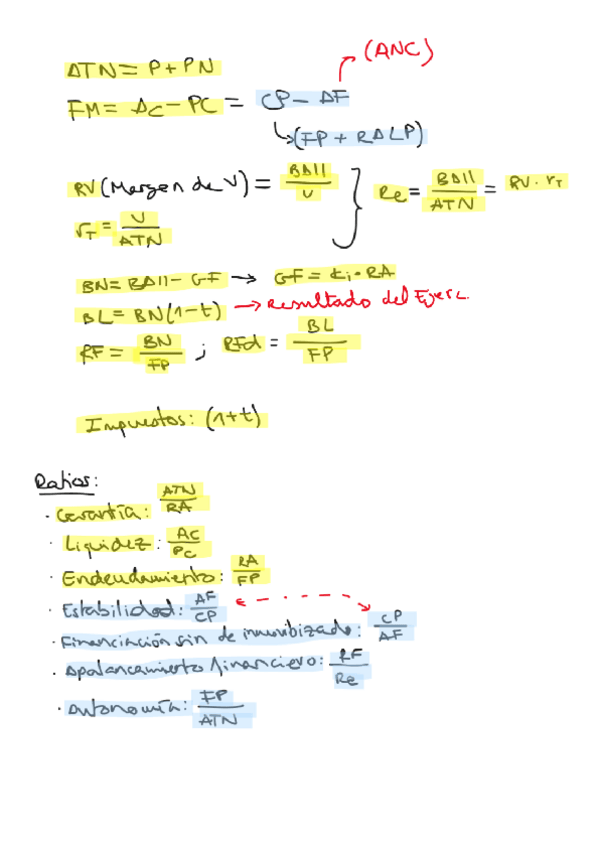 (ANC)
ATN = P + PN
FM = AC - PC = CP - AF
(FP + RALP)
RV (Margen de V) = BAII / V
Re = BAII / ATN = RV · rT
rT = V / ATN
BN = BAII - GF → GF = ti · RA
BL = BN(1-t) → Resultado del Ejerc.
RF = BN / FP ; RFd = BL / FP
Impuestos: (1+t)
Ratios:
· Garantía: ATN / RA
· Liquidez: AC / PC
· Endeudamiento: RA / FP
· Estabilidad: AF / CP
· Financiación sin de inmovibizado: CP / AF
· Apalancamiento financiero: RF / Re
· Autonomía: FP / ATN